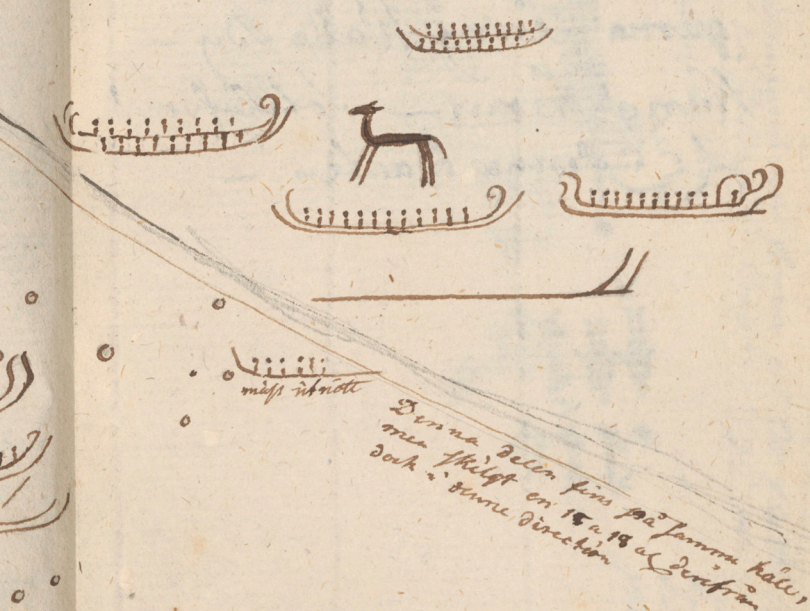 mäst utnött
Denna delen fins på samma häll,
men skilgt en 15 a 18 al. därifrån
dock i denne direction